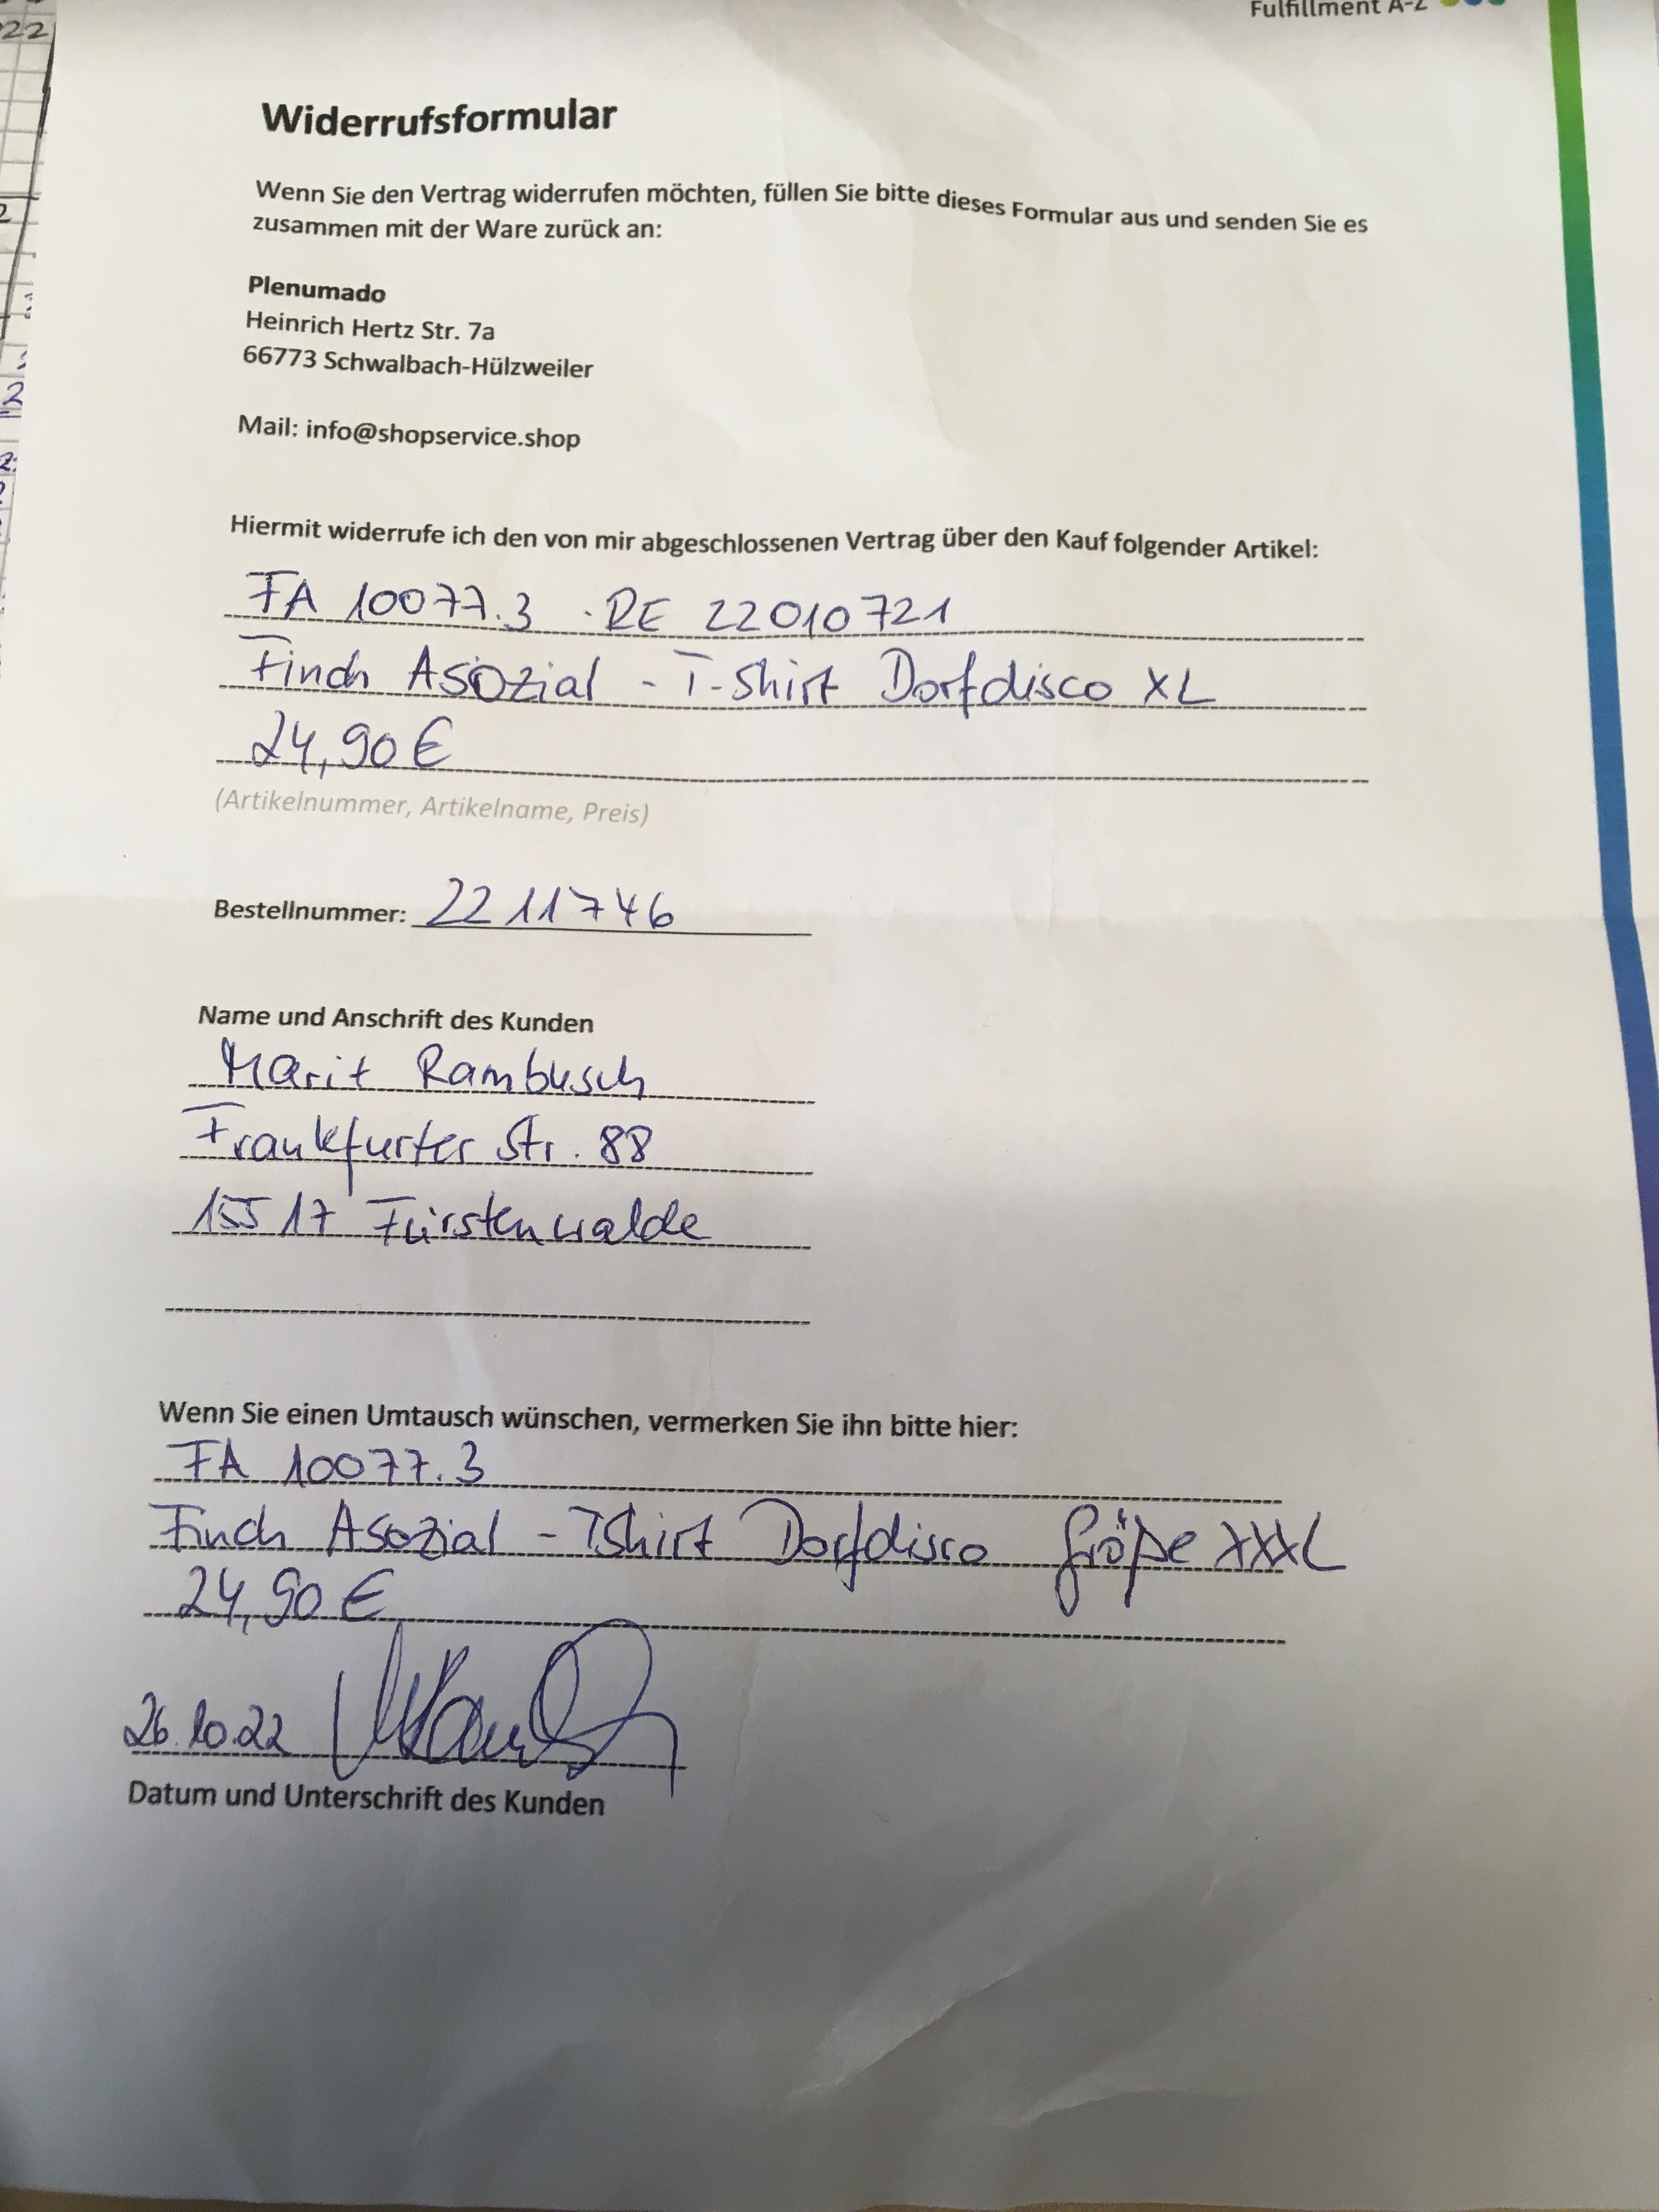 Fulfillment A-Z
22
Widerrufsformular
Wenn Sie den Vertrag widerrufen möchten, füllen Sie bitte dieses Formular aus und senden Sie es
zusammen mit der Ware zurück an:
Plenumado
Heinrich Hertz Str. 7a
66773 Schwalbach-Hülzweiler
Mail: info@shopservice.shop
Hiermit widerrufe ich den von mir abgeschlossenen Vertrag über den Kauf folgender Artikel:
FA 10077.3 - RE 22010721
Finch Asozial - T-Shirt Dorfdisco XL
24,90 €
(Artikelnummer, Artikelname, Preis)
Bestellnummer: 2211746
Name und Anschrift des Kunden
Marit Rambusch
Frankfurter Str. 88
15517 Fürstenwalde
Wenn Sie einen Umtausch wünschen, vermerken Sie ihn bitte hier:
FA 10077.3
Finch Asozial - TShirt Dorfdisco Größe XXXL
24,90 €
26.10.22
Datum und Unterschrift des Kunden